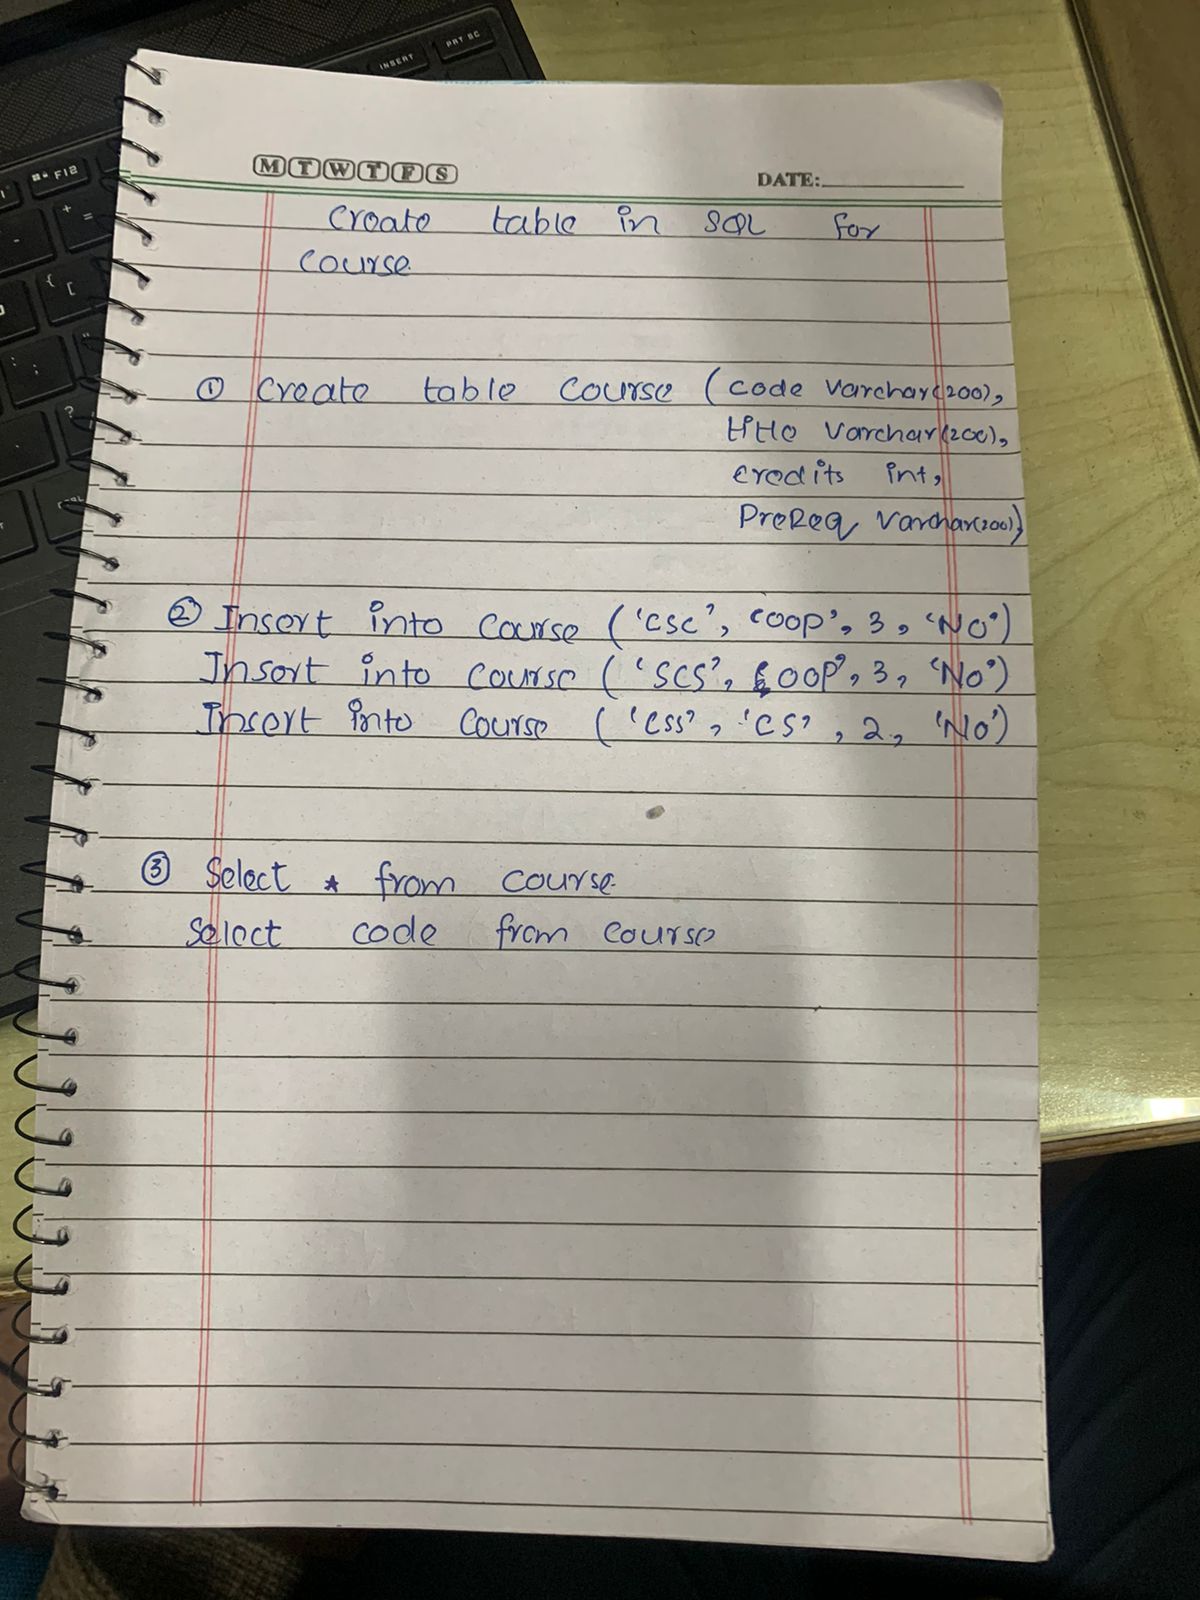 INSERT
PRT SC
F12
M T W T F S
DATE:
Create table in SQL for
Course.
① Create table Course (code varchar(200),
title varchar(200),
credits int,
PreReq varchar(200))
② Insert into Course ('CSC', 'OOP', 3, 'NO')
Insert into Course ('SCS', 'OOP', 3, 'No')
Insert into Course ('CSS', 'CS', 2, 'No')
③ Select * from course.
Select code from course